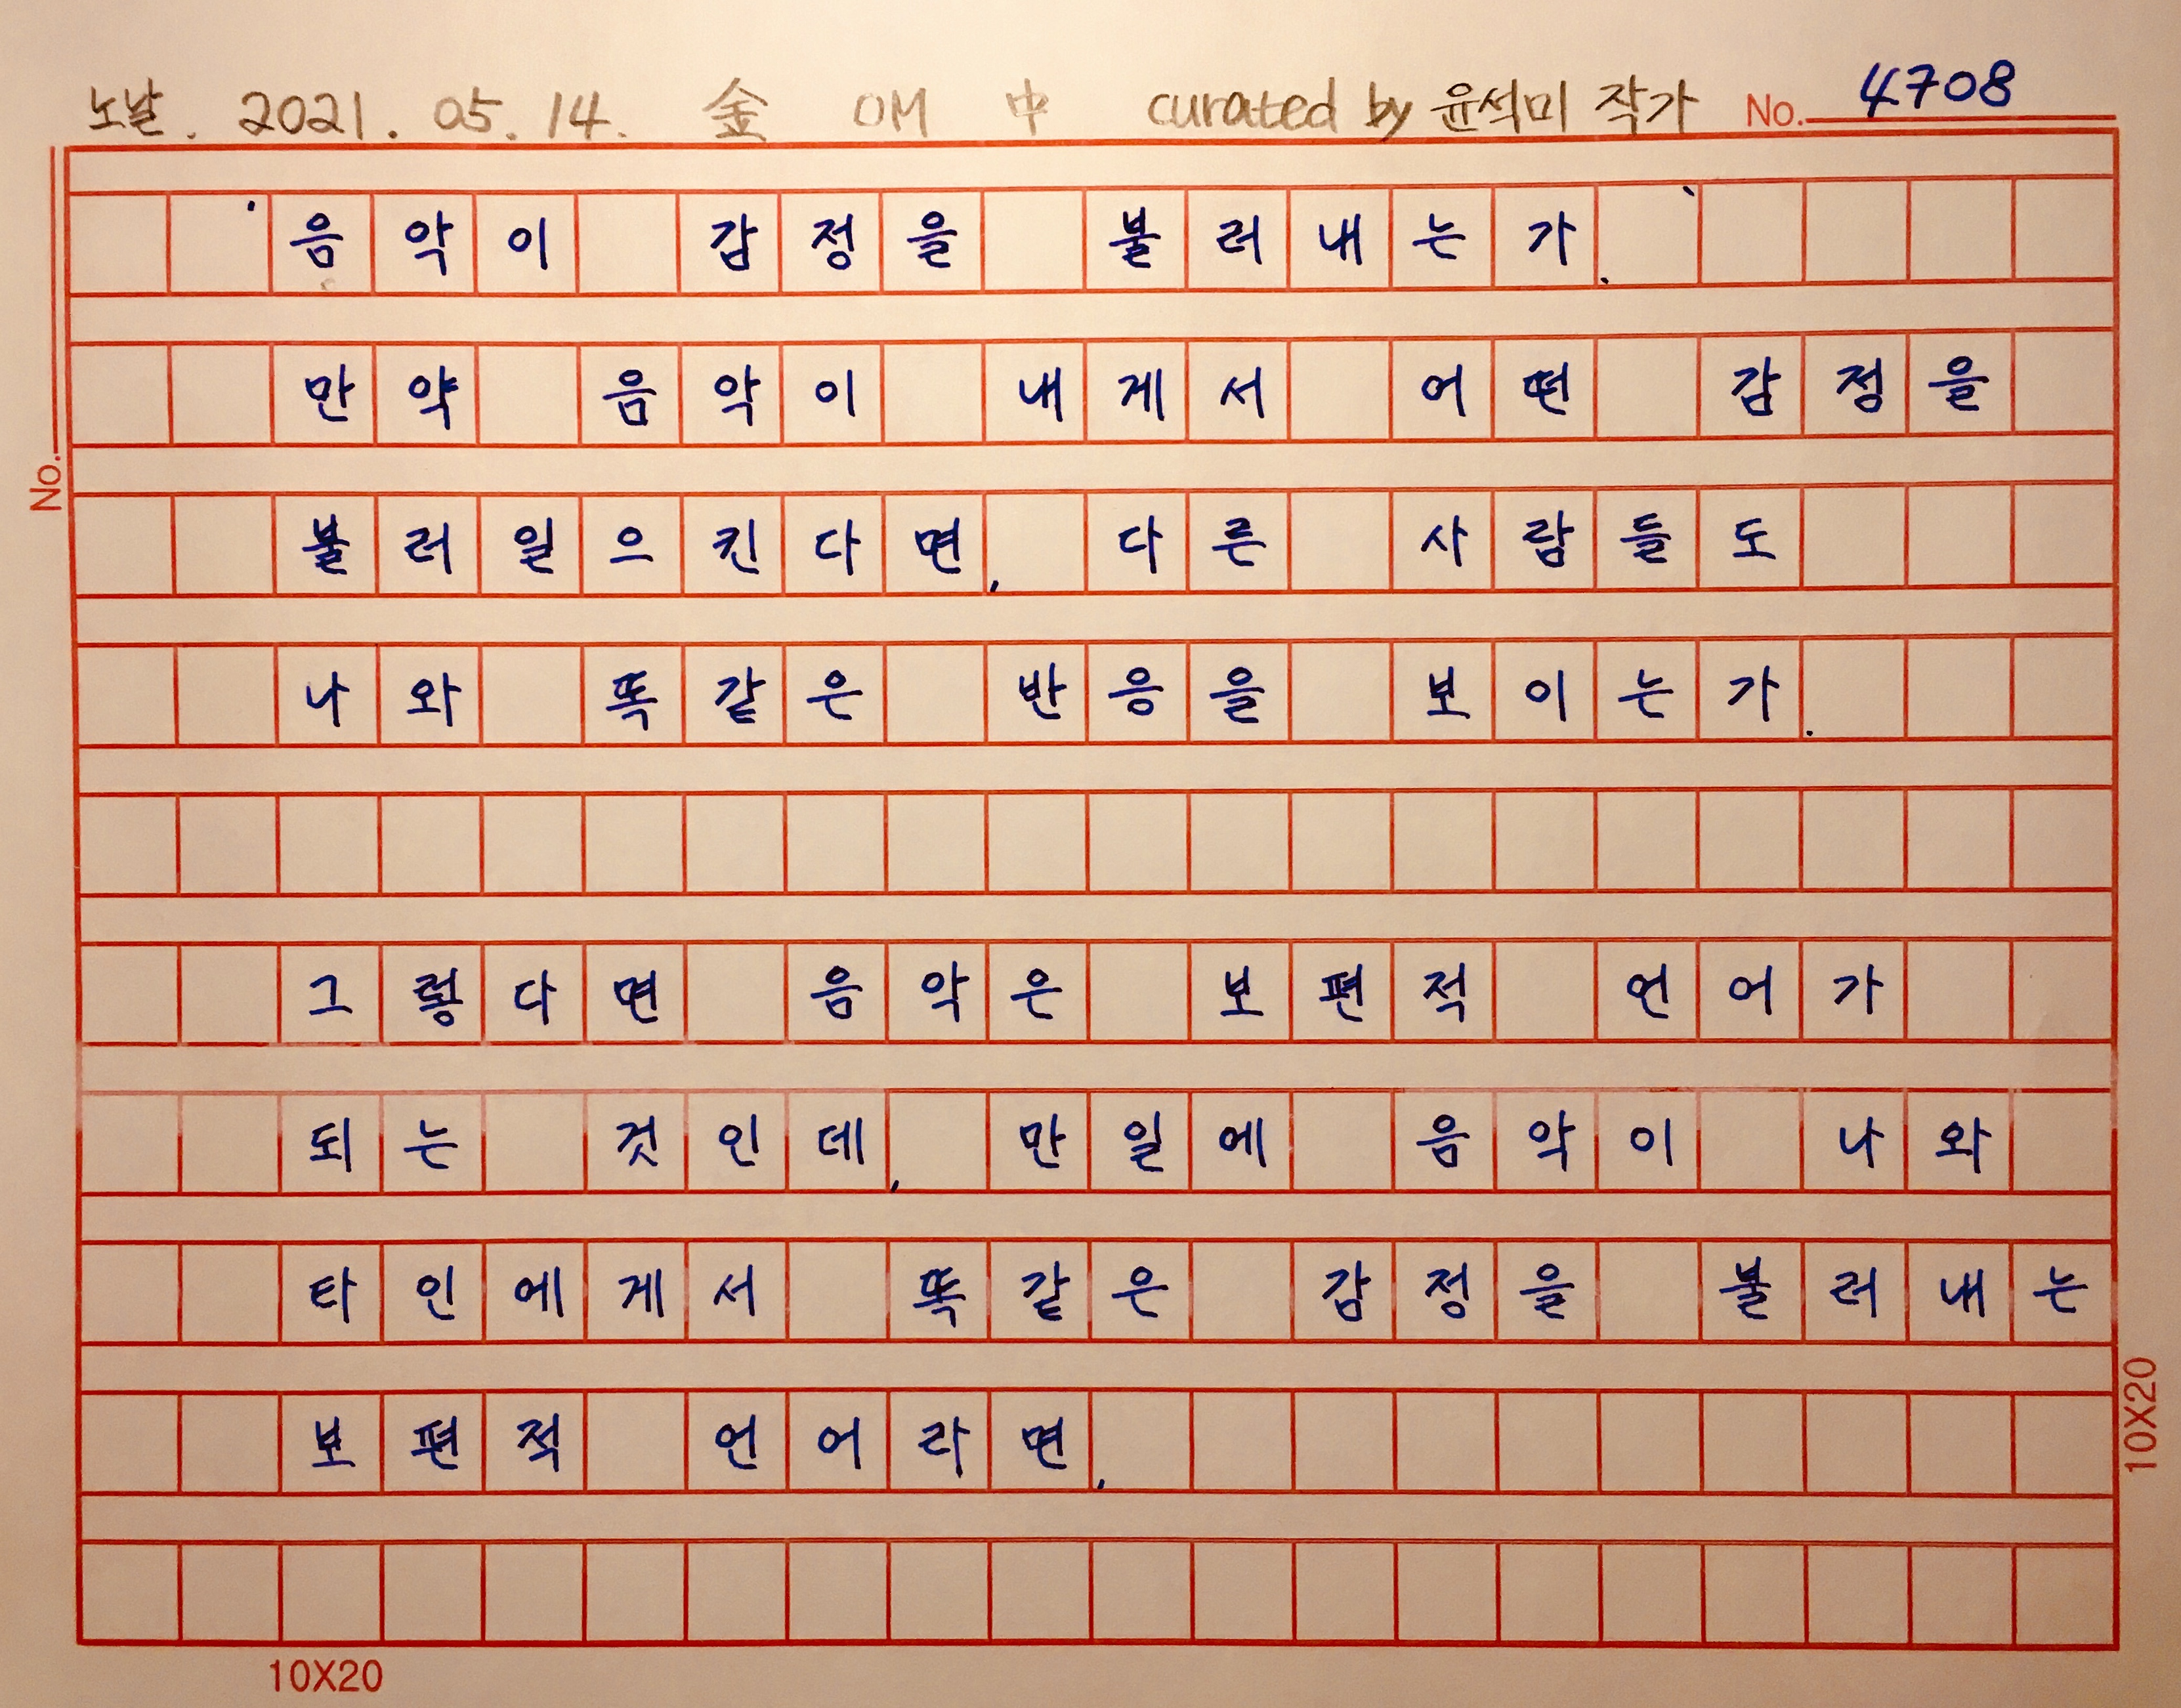 노날. 2021. 05. 14. 金 OM 中 curated by 윤석미 작가 No. 4708
'음악이 감정을 불러내는가.'
만약 음악이 내게서 어떤 감정을
No.
불러일으킨다면, 다른 사람들도
나와 똑같은 반응을 보이는가.
그렇다면 음악은 보편적 언어가
되는 것인데, 만일에 음악이 나와
타인에게서 똑같은 감정을 불러내는
보편적 언어라면,
10X20
10X20